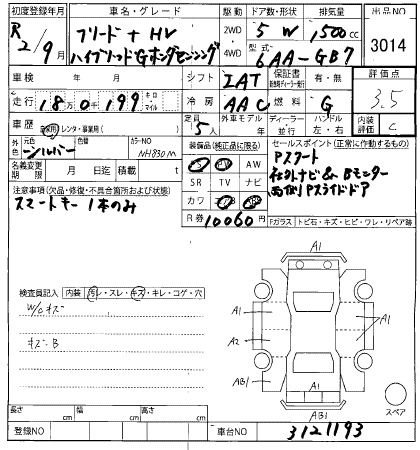 初度登録年月 車名・グレード 駆動 ドア数・形状 排気量 出品NO
R2/9月 フリード+HV 2WD 5W 1500cc 3014
ハイブリッドGホンダセンシング 4WD 型式 6AA-GB7
車検 年 月 シフト IAT 保証書 有・無 評価点
走行 18万0千199 キロ マイル 冷房 AAC 燃料 G 3.5
車歴 自家用 レンタ・事業用( ) 定員 5人 外車モデル 年 ディーラー 並行 ハンドル 左・右 内装評価 C
外色 元色 シルバー 色替 カラーNO NH830M
装備品(純正品に限る) セールスポイント(正常に動作するもの)
名義変更期限 月 日迄 積載 t
SR TV ナビ
AW
カワ
R券 10060円
Pスタート
社外ナビ& Bモニター
両側Pスライドドア
注意事項(欠品・修復・不具合箇所および状態)
スマートキー 1本のみ
Fガラス トビ石・キズ・ヒビ・ワレ・リペア跡
検査員記入 内装 汚レ・スレ・キズ・キレ・コゲ・穴
W/Cキズ
キズ・B
A1
A1
A2
AB1
A1
AB1
スペア
長さ cm 幅 cm 高さ cm
登録NO 車台NO 3121193